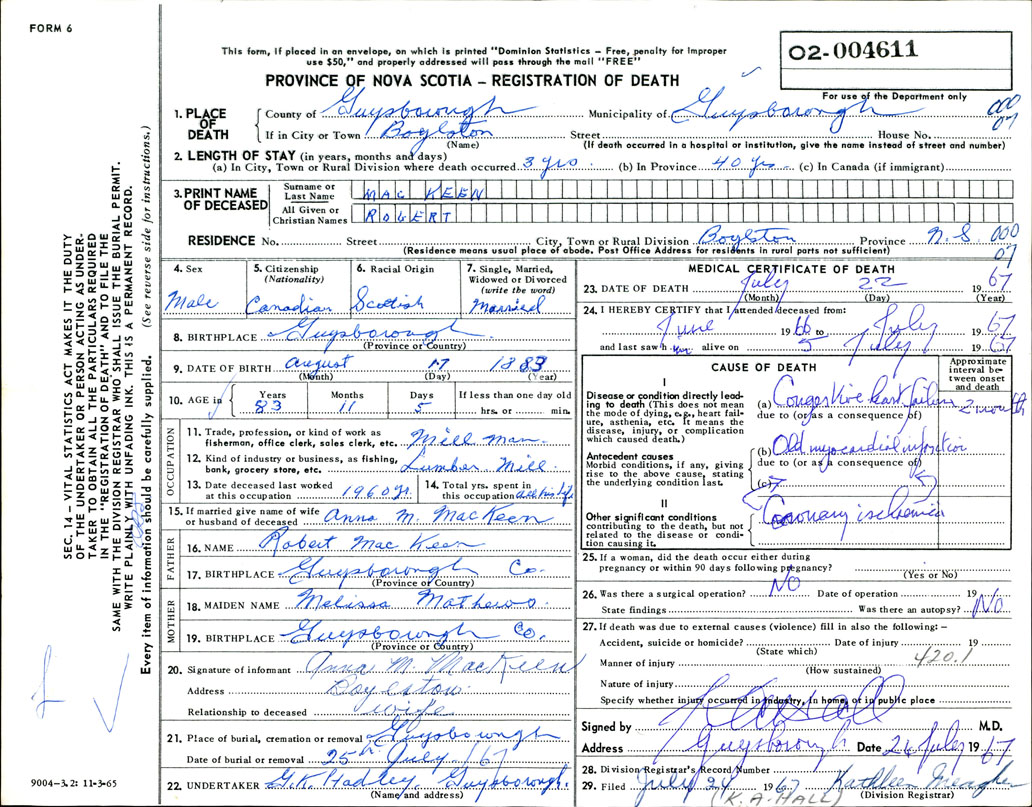 FORM 6
This form, if placed in an envelope, on which is printed "Dominion Statistics – Free, penalty for improper
use $50," and properly addressed will pass through the mail "FREE"
02-004611
PROVINCE OF NOVA SCOTIA – REGISTRATION OF DEATH
For use of the Department only
1. PLACE OF DEATH County of Guysborough Municipality of Guysborough 000
If in City or Town Boylston Street House No. 07
(Name) (If death occurred in a hospital or institution, give the name instead of street and number)
2. LENGTH OF STAY (in years, months and days)
(a) In City, Town or Rural Division where death occurred 3 yrs. (b) In Province 40 yrs. (c) In Canada (if immigrant)
3. PRINT NAME OF DECEASED
Surname or Last Name MAC KEEN
All Given or Christian Names ROBERT
RESIDENCE No. Street City, Town or Rural Division Boylston Province N.S. 000
(Residence means usual place of abode. Post Office Address for residents in rural parts not sufficient) 07
4. Sex Male
5. Citizenship (Nationality) Canadian
6. Racial Origin Scottish
7. Single, Married, Widowed or Divorced (write the word) Married
8. BIRTHPLACE Guysborough
(Province or Country)
9. DATE OF BIRTH August 17 1883
(Month) (Day) (Year)
10. AGE in Years Months Days If less than one day old
83 11 5 hrs. or min.
OCCUPATION
11. Trade, profession, or kind of work as
fisherman, office clerk, sales clerk, etc. Mill man
12. Kind of industry or business, as fishing,
bank, grocery store, etc. Lumber Mill
13. Date deceased last worked
at this occupation 1960
14. Total yrs. spent in
this occupation all his life
15. If married give name of wife
or husband of deceased Anna M. MacKeen
FATHER
16. NAME Robert MacKeen
17. BIRTHPLACE Guysborough Co.
(Province or Country)
MOTHER
18. MAIDEN NAME Melissa Mathews
19. BIRTHPLACE Guysborough Co.
(Province or Country)
20. Signature of informant Anna M. MacKeen
Address Boylston
Relationship to deceased wife
21. Place of burial, cremation or removal Guysborough
Date of burial or removal 25th July /67
22. UNDERTAKER G.K. Hadley, Guysborough
(Name and address)
MEDICAL CERTIFICATE OF DEATH
23. DATE OF DEATH July 22 1967
(Month) (Day) (Year)
24. I HEREBY CERTIFY that I attended deceased from:
June 1966 to July 1967
and last saw him alive on 5 July 1967
CAUSE OF DEATH
Approximate interval between onset and death
I
Disease or condition directly leading
to death (This does not mean
the mode of dying, e.g., heart failure,
asthenia, etc. It means the
disease, injury, or complication
which caused death.)
(a) Congestive heart failure 2 month
due to (or as a consequence of)
Antecedent causes
Morbid conditions, if any, giving
rise to the above cause, stating
the underlying condition last.
(b) Old myocardial infarction
due to (or as a consequence of)
(c)
II
Other significant conditions
contributing to the death, but not
related to the disease or condition
causing it.
Coronary ischemia
25. If a woman, did the death occur either during
pregnancy or within 90 days following pregnancy?
(Yes or No)
26. Was there a surgical operation? NO Date of operation 19
State findings Was there an autopsy? NO
27. If death was due to external causes (violence) fill in also the following: –
Accident, suicide or homicide? Date of injury 19
(State which)
Manner of injury 420.1
(How sustained)
Nature of injury
Specify whether injury occurred in Industry, in home, or in public place
Signed by M.D.
Address Guysborough Date 24 July 1967
28. Division Registrar's Record Number
29. Filed July 24 1967 Kathleen Meagher
(K. A. HALL) (Division Registrar)
SEC. 14 – VITAL STATISTICS ACT MAKES IT THE DUTY
OF THE UNDERTAKER OR PERSON ACTING AS UNDER-
TAKER TO OBTAIN ALL THE PARTICULARS REQUIRED
IN THE "REGISTRATION OF DEATH" AND TO FILE THE
SAME WITH THE DIVISION REGISTRAR WHO SHALL ISSUE THE BURIAL PERMIT.
WRITE PLAINLY WITH UNFADING INK. THIS IS A PERMANENT RECORD.
Every item of information should be carefully supplied. (See reverse side for instructions.)
9004–3.2: 11-3-65